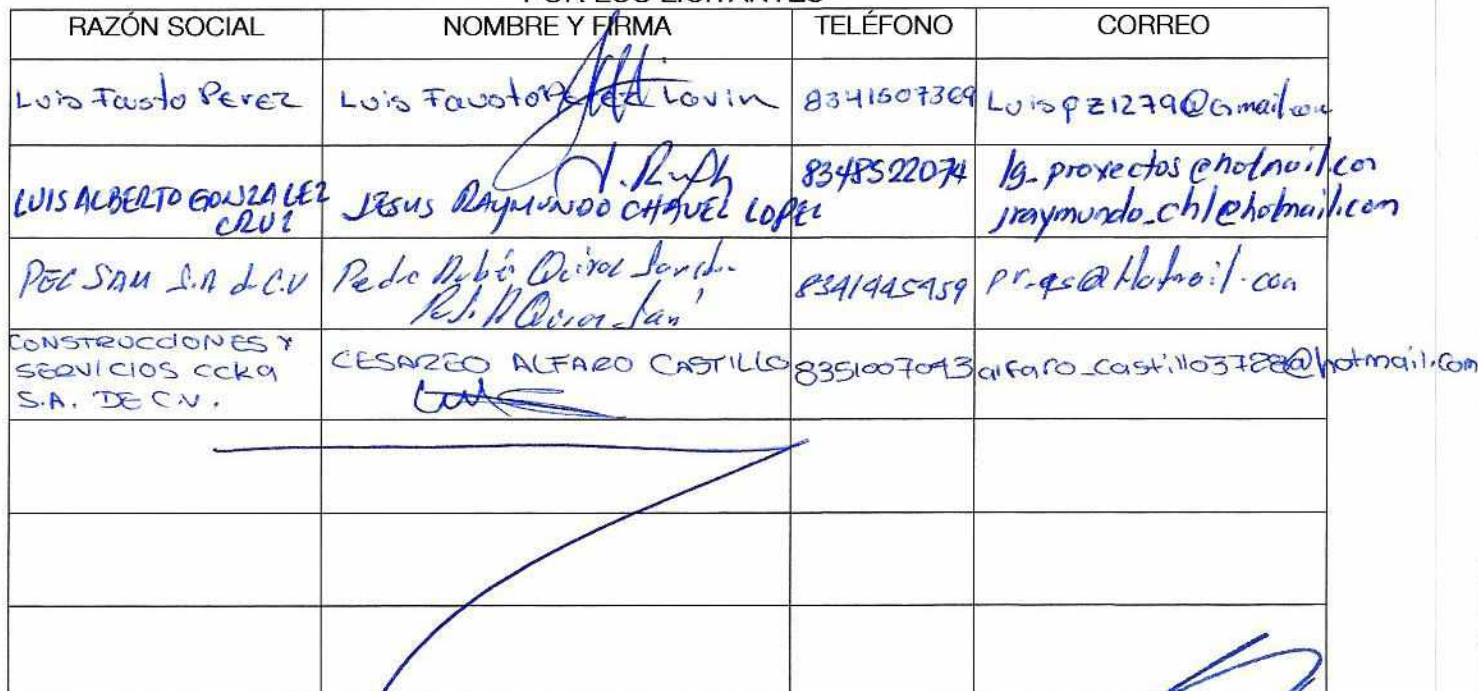 POR LOS LICITANTES
RAZÓN SOCIAL NOMBRE Y FIRMA TELÉFONO CORREO
Luis Fausto Perez Luis Fausto Lovin 8341507369 Luispz1279@Gmail.com
LUIS ALBERTO GONZALEZ CRUZ JESUS RAYMUNDO CHAVEZ LOPEZ 8348522074 lg_proyectos@hotmail.com
jraymundo_chl@hotmail.com
S.A de C.V 8341445959
CONSTRUCCIONES Y
SERVICIOS CCKA
S.A. DE C.V.
CESAREO ALFARO CASTILLO 8351007043 alfaro_castillo3728@hotmail.com